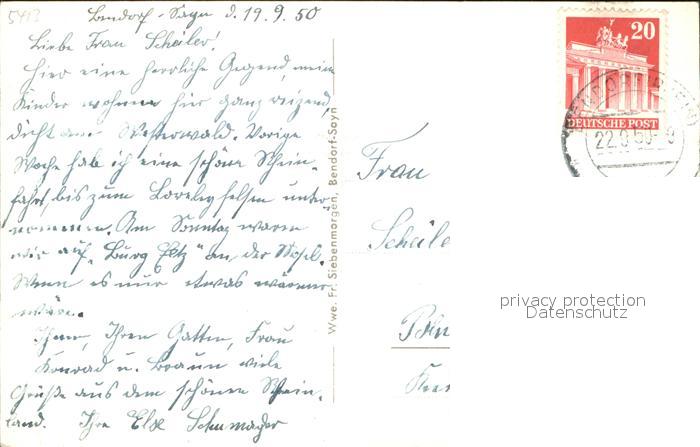 5413
Bendorf-Sayn d. 19.9.50
Liebe Frau Scheiler!
Hier eine herrliche Gegend, meine
Kinder wohnen hier ganz reizend,
dicht am Westerwald. Vorige
Woche hab ich eine schöne Rhein-
fahrt bis zum Loreleyfelsen unter-
nommen. Am Sonntag waren
wir auf „Burg Eltz" an der Mosel.
Wenn es nur etwas wärmer
wäre.
Ihnen, Ihrem Gatten, Frau
Konrad u. Braun viele
Grüße aus dem schönen Rhein-
land. Ihre Else Schumacher
Wwe. Fr. Siebenmorgen, Bendorf-Sayn
20
DEUTSCHE POST
BENDORF (RHEIN)
22.9.50
Frau
Scheile
privacy protection
Datenschutz